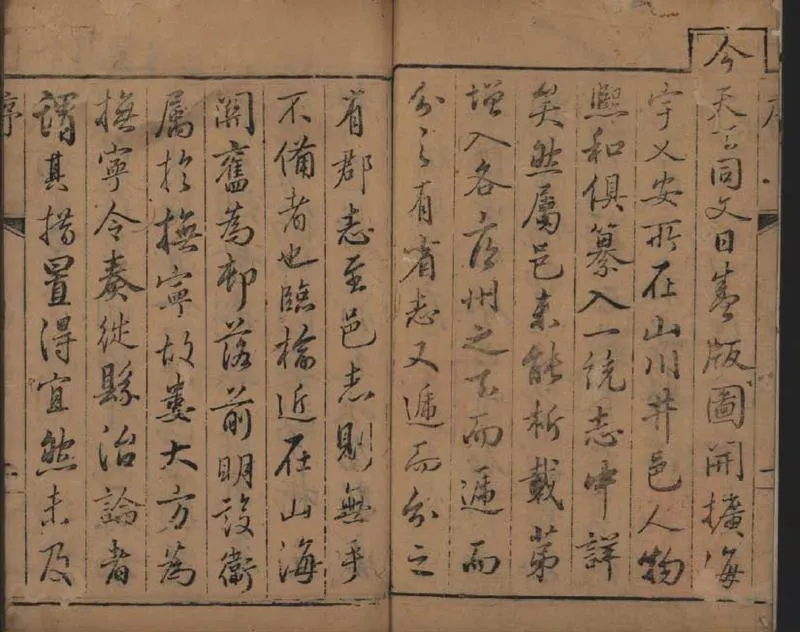 今天下同文日盛版圖開擴海
宇乂安所在山川井邑人物
熙和俱纂入一統志中詳
矣然屬邑未能析載第
增入各府州之下而遞而
分之有省志又遞而分之
有郡志至邑志則無乎
不備者也臨榆近在山海
關舊為部落前明設衛
屬於撫寧故婁大方為
撫寧令奏徙縣治論者
謂其措置得宜然未及
序